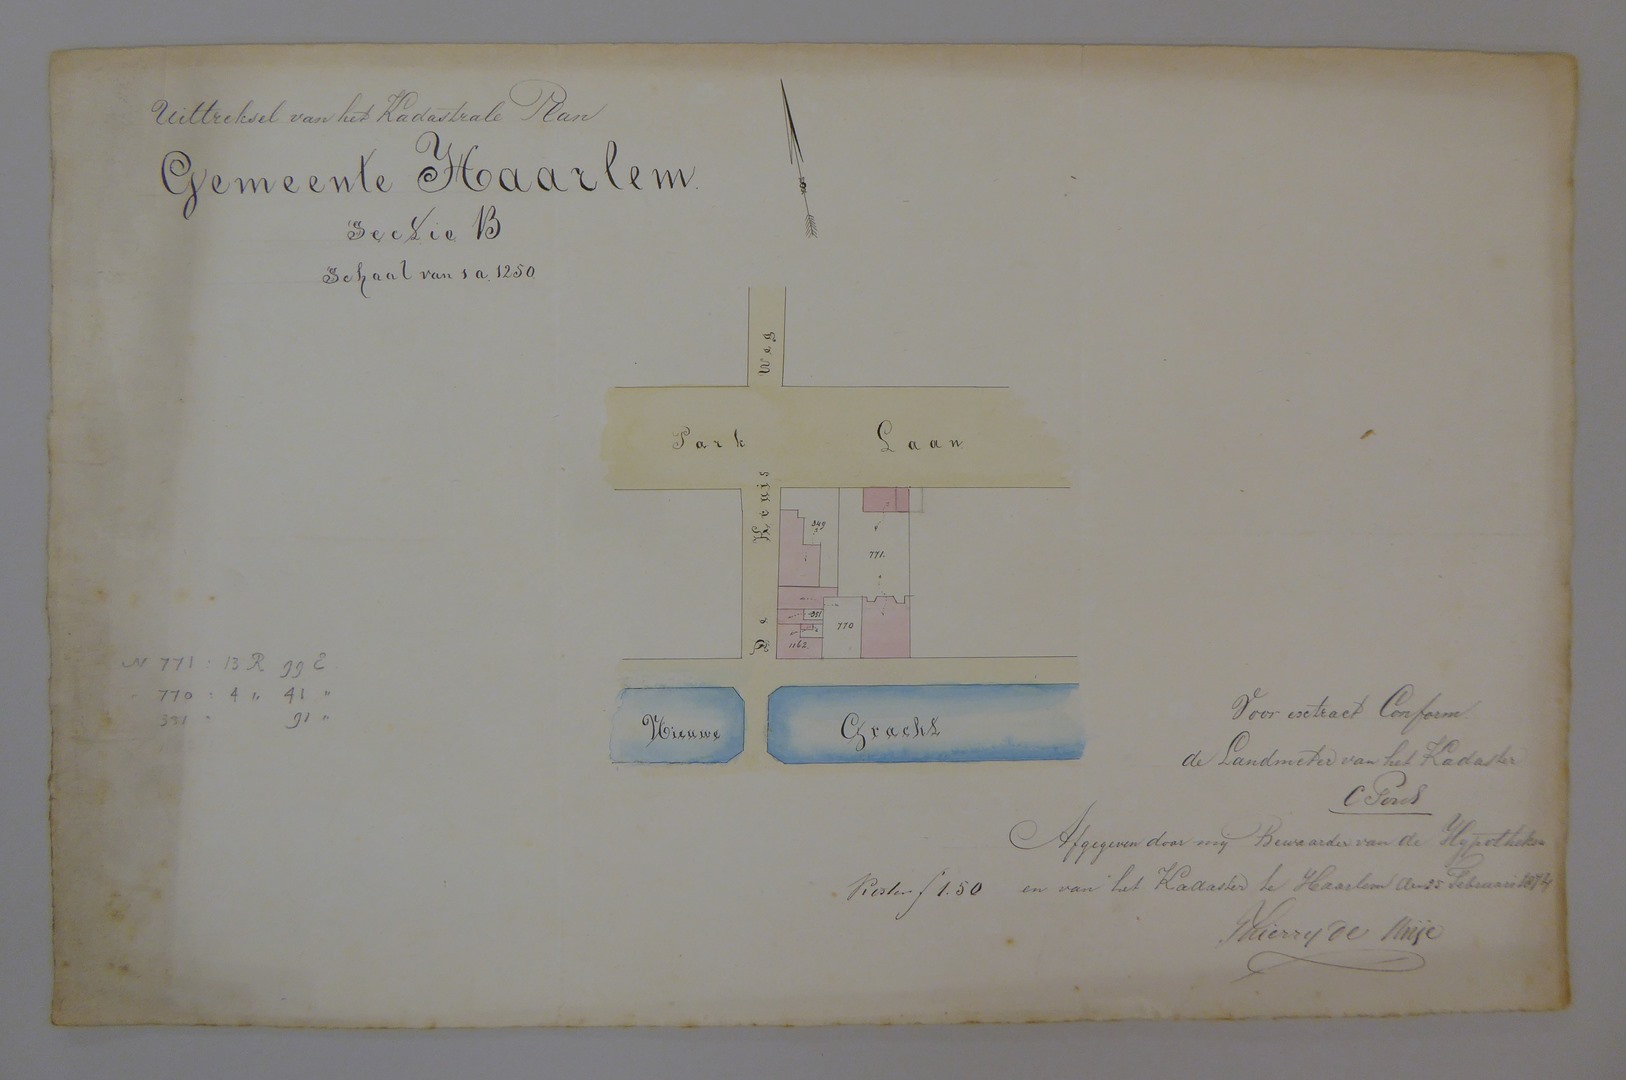 Uittreksel van het Kadastrale Plan
Gemeente Haarlem.
Sectie B
Schaal van 1 a 1250.
Weg
Park Laan
Kruis
De
349
771.
331
770
1162
Nieuwe Gracht
N 771 : 13 R 99 E
" 770 : 4 " 41 "
331 " 91 "
Voor extract Conform
de Landmeter van het Kadaster
Afgegeven door my Bewaarder van de Hypotheken
Kosten f 1.50 en van het Kadaster te Haarlem den 25 Februari 1874
Thierry de